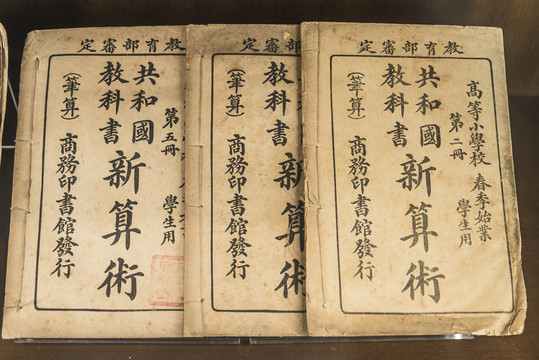 教育部審定
高等小學校 春季始業
第二冊 學生用
共和國
教科書
新算術
(筆算)
商務印書館發行
育部審定
教科書
新算術
(筆算)
商務印書館發行
教育部審定
第五冊 學生用
共和國
教科書
新算術
(筆算)
商務印書館發行